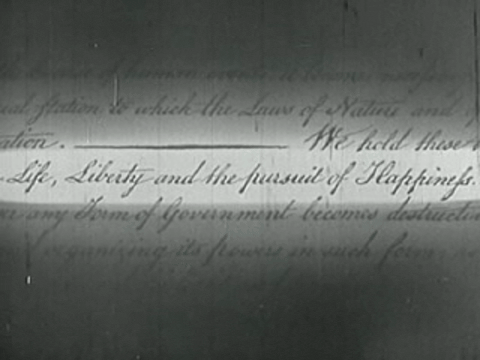 Course of human events, it becomes necessary
ual station to which the Laws of Nature and
ation. We hold these
Life, Liberty and the pursuit of Happiness.
any Form of Government becomes destructive
organizing its powers in such form,